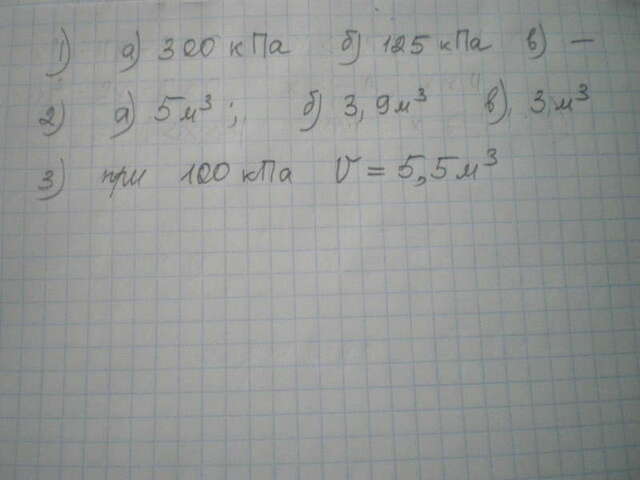 1) а) 300 кПа б) 125 кПа в) —
2) а) 5 м³ ; б) 3,9 м³ в) 3 м³
3) при 100 кПа V = 5,5 м³